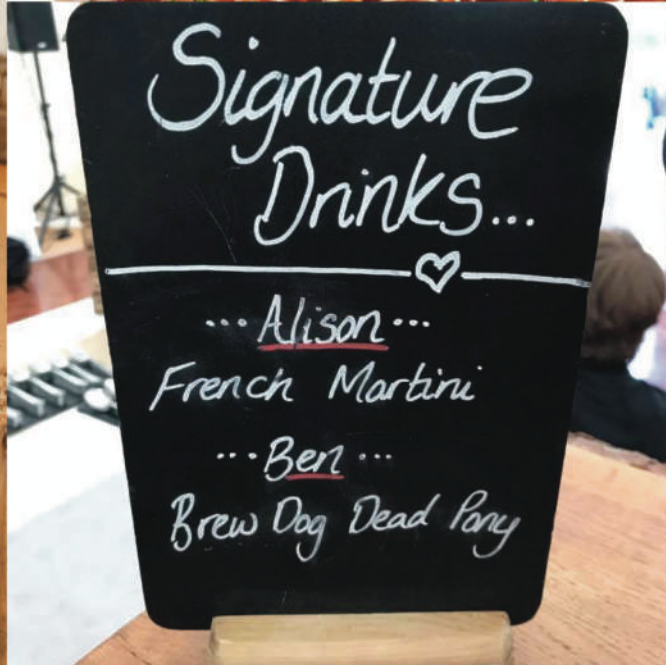 Signature
Drinks...
...Alison...
French Martini
...Ben...
Brew Dog Dead Pony